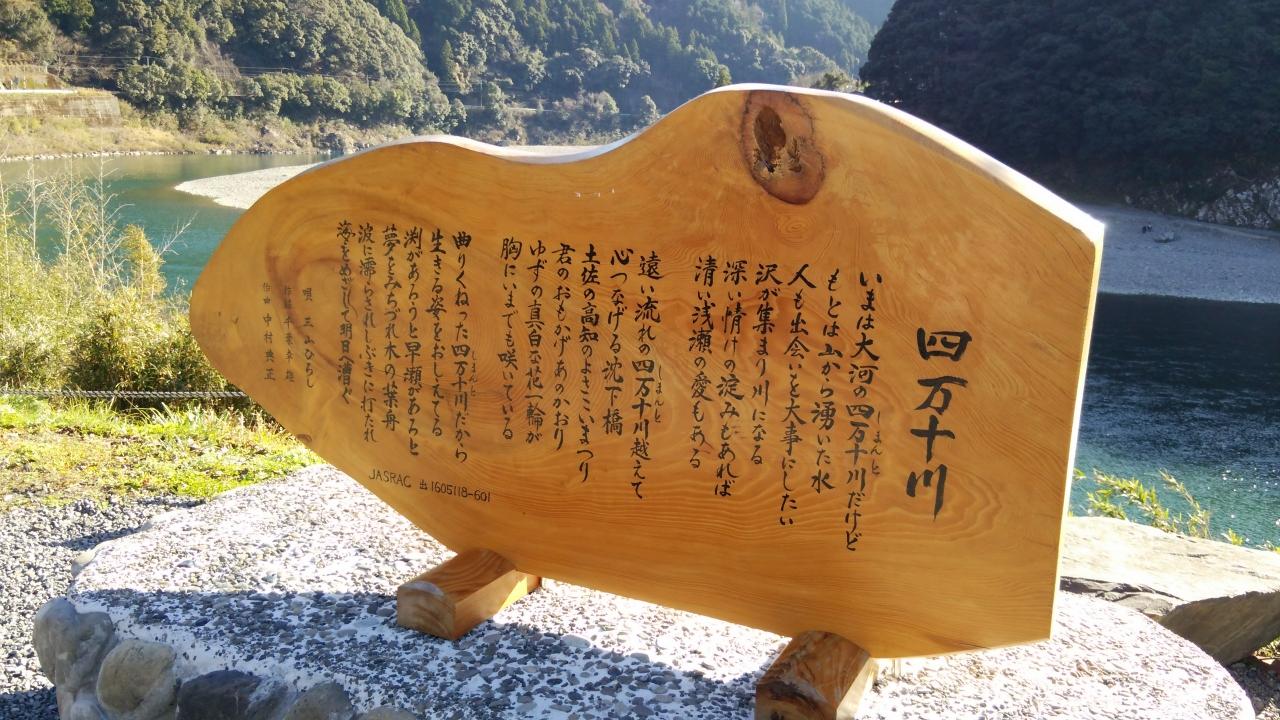 四万十川
いまは大河の四万十川だけど
しまんと
もとは山から湧いた水
人も出会いを大事にしたい
沢が集まり川になる
深い情けの淀みもあれば
清い浅瀬の愛もある
遠い流れの四万十川越えて
しまんと
心つなげる沈下橋
土佐の高知のよさこいまつり
君のおもかげあのかおり
ゆずの真白な花一輪が
胸にいまでも咲いている
曲りくねった四万十川だから
しまんと
生きる姿をおしえてる
渕があろうと早瀬があろと
夢とみちづれ木の葉舟
波に濡らされしぶきに打たれ
海をめざして明日へ漕ぐ
唄 三山ひろし
作詞 千葉幸雄
作曲 中村典正
JASRAC 出1605118-601